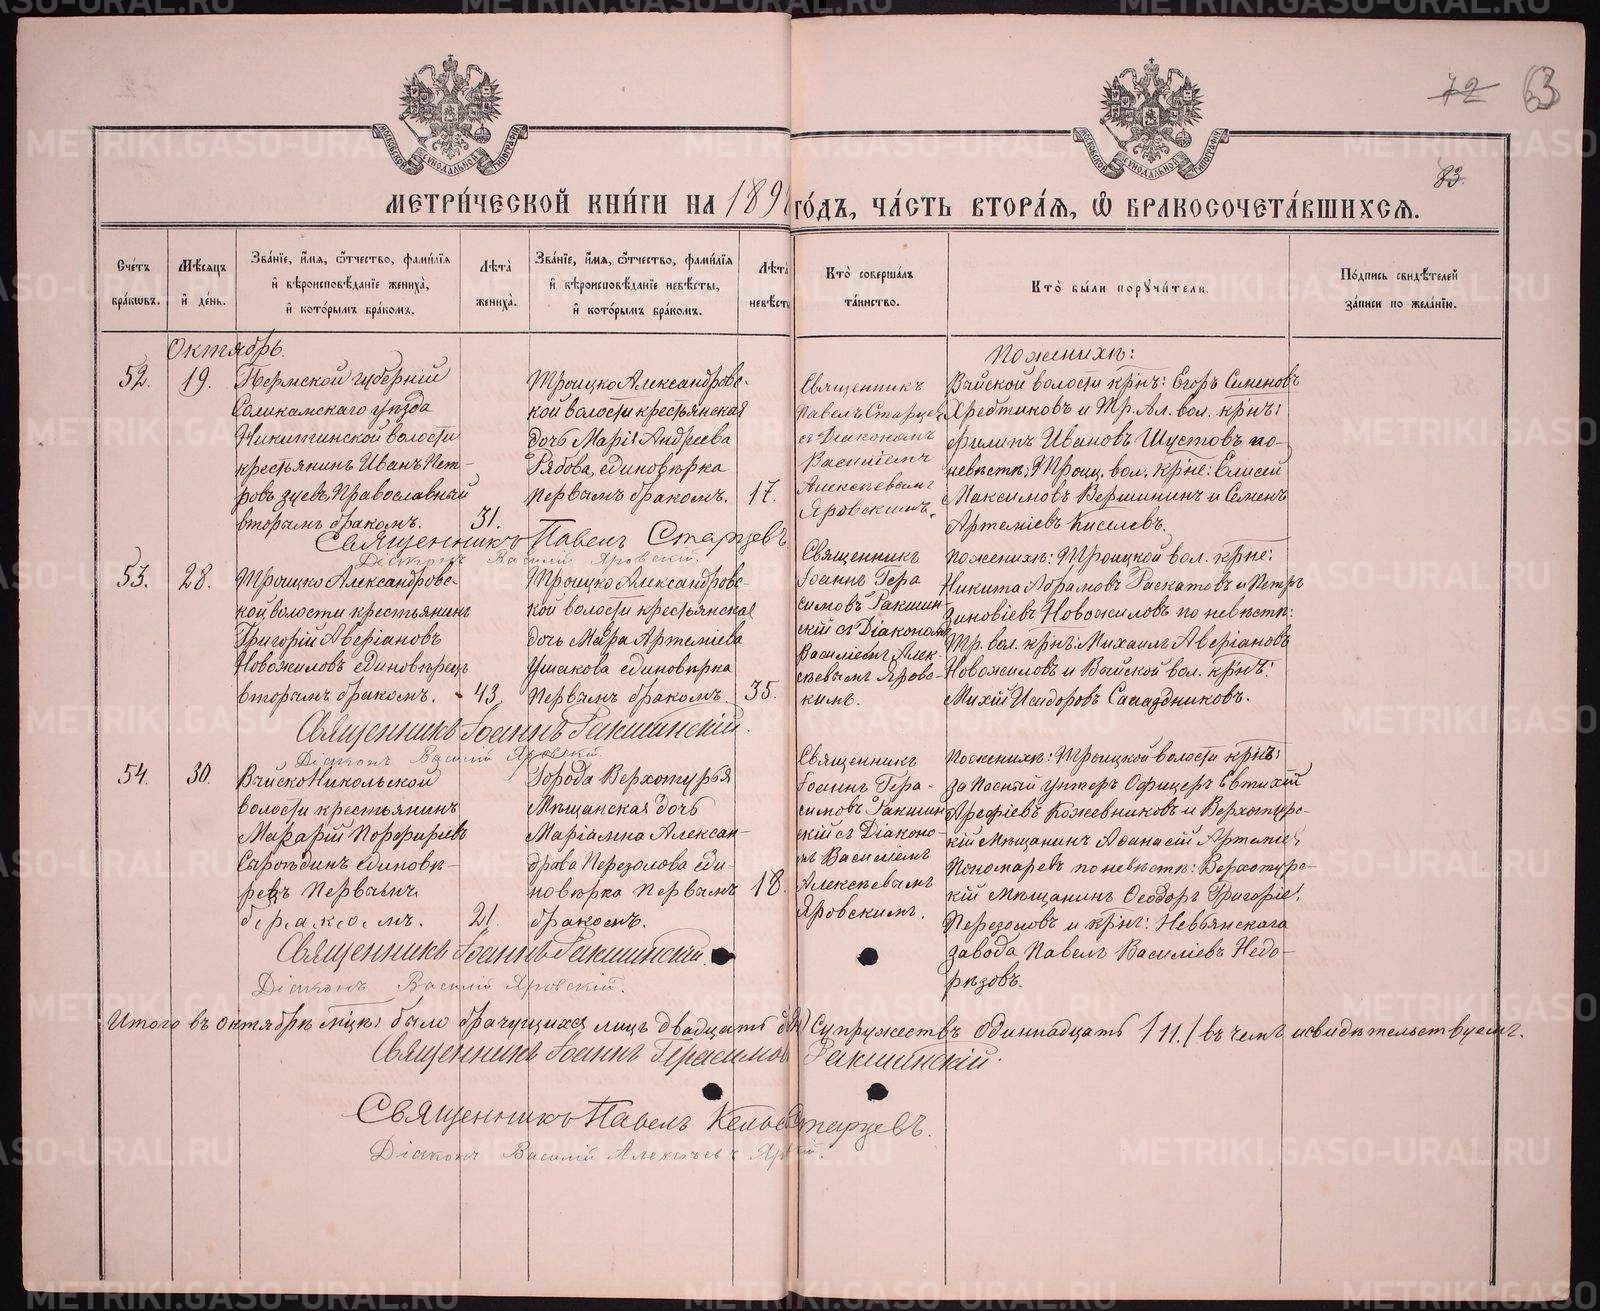 72 63
83.
МЕТРИ́ЧЕСКОЙ КНИ́ГИ НА 189 ГО́ДЪ, ЧА́СТЬ ВТОРА́Я, Ѡ БРАКОСОЧЕТА́ВШИХСЯ.
Сче́тъ бра́кωвъ.
Мѣ́сяцъ и́ де́нь.
Зва́нїе, и́мя, ѻ́тчество, фами́лїя и́ вѣроисповѣ́данїе жениха̀, и́ кото́рымъ бра́комъ.
Лѣ́та жениха̀.
Зва́нїе, и́мя, ѻ́тчество, фами́лїя и́ вѣроисповѣ́данїе невѣ́сты, и́ кото́рымъ бра́комъ.
Лѣ́та невѣ́сты
Кто̀ соверша́лъ та́инство.
Кто̀ бы́ли порꙋчи́тели.
По́дпись свидѣ́телей за́писи по жела́нїю.
Октябрь.
52.
19.
Пермской губерніи
Соликамскаго уѣзда
Никитинской волости
крестьянинъ Иванъ Пет-
ровъ Зуевъ, Православный
вторымъ бракомъ.
31.
Троицко Александровс-
кой волости крестьянская
дочь Марія Андреева
Рябова, единовѣрка
первымъ бракомъ.
17.
Священникъ
Павелъ Старцев
съ Діакономъ
Василіемъ
Алексѣевымъ
Яровскимъ.
Поженихѣ:
Вайской волости крнъ: Егоръ Семеновъ
Хребтиковъ и Тр. Ал. вол. крнъ:
Филипъ Ивановъ Шустовъ по-
невѣстѣ: Троиц. вол. крне: Елисей
Максимовъ Вершининъ и Семенъ
Артеміевъ Киселевъ.
Священникъ Павелъ Старцевъ
Діаконъ Василій Яровскій.
53.
28.
Троицко Александровс-
кой волости крестьянинъ
Григорій Аверіановъ
Новожиловъ единовѣрецъ
вторымъ бракомъ.
43.
Троицко Александровс-
кой волости крестьянская
дочь Мавра Артеміева
Ушакова единовѣрка
первымъ бракомъ.
35.
Священникъ
Іоаннъ Гера
симовъ Ракшин
скій съ Діакономъ
Василіемъ Алек-
сѣевымъ Яровс-
кимъ.
Поженихѣ: Троицкой вол. крне:
Никита Абрамовъ Раскатовъ и Петръ
Зиновіевъ Новожиловъ по невѣстѣ:
Тр. вол. крнъ: Михаилъ Аверіановъ
Новожиловъ и Вайской вол. крнъ:
Михій Исидоровъ
Священникъ Іоаннъ Ракшинскій.
Діаконъ Василій Яровскій.
54.
30.
Вайско Никольской
волости крестьянинъ
Макарій Порфирьевъ
Сыропдинъ единовѣ-
рецъ первымъ
бракомъ.
21.
Города Верхотурья
Мѣщанская дочь
Маріамна Алексан-
дрова Перезолова еди-
новѣрка первымъ
бракомъ.
18.
Священникъ
Іоаннъ Гера-
симовъ Ракшин
скій съ Діаконо-
мъ Василіемъ
Алексѣевымъ
Яровскимъ.
Поженихѣ: Троицкой волости крнъ:
запасный унтеръ Офицеръ Евтихій
Арефіевъ Кожевниковъ и Верхотурс-
кій Мѣщанинъ Аѳанасій Артеміе:
Пономаревъ по невѣстѣ: Верхотурс-
кій Мѣщанинъ Ѳеодоръ Григоріе:
Перезоловъ и крнъ: Невьянскаго
завода Павелъ Василіевъ Недо-
рѣзовъ.
Священникъ Іоаннъ Ракшинскій.
Діаконъ Василій Яровскій.
Итого въ октябрѣ мцѣ: было брачущихся лицъ двадцать дв супружествъ одиннадцать /11./ въ чемъ и свидѣтельствуемъ.
Священникъ Іоаннъ Герасимов Ракшинскій.
Священникъ Павелъ Старцевъ.
Діаконъ Василій Алексѣевъ